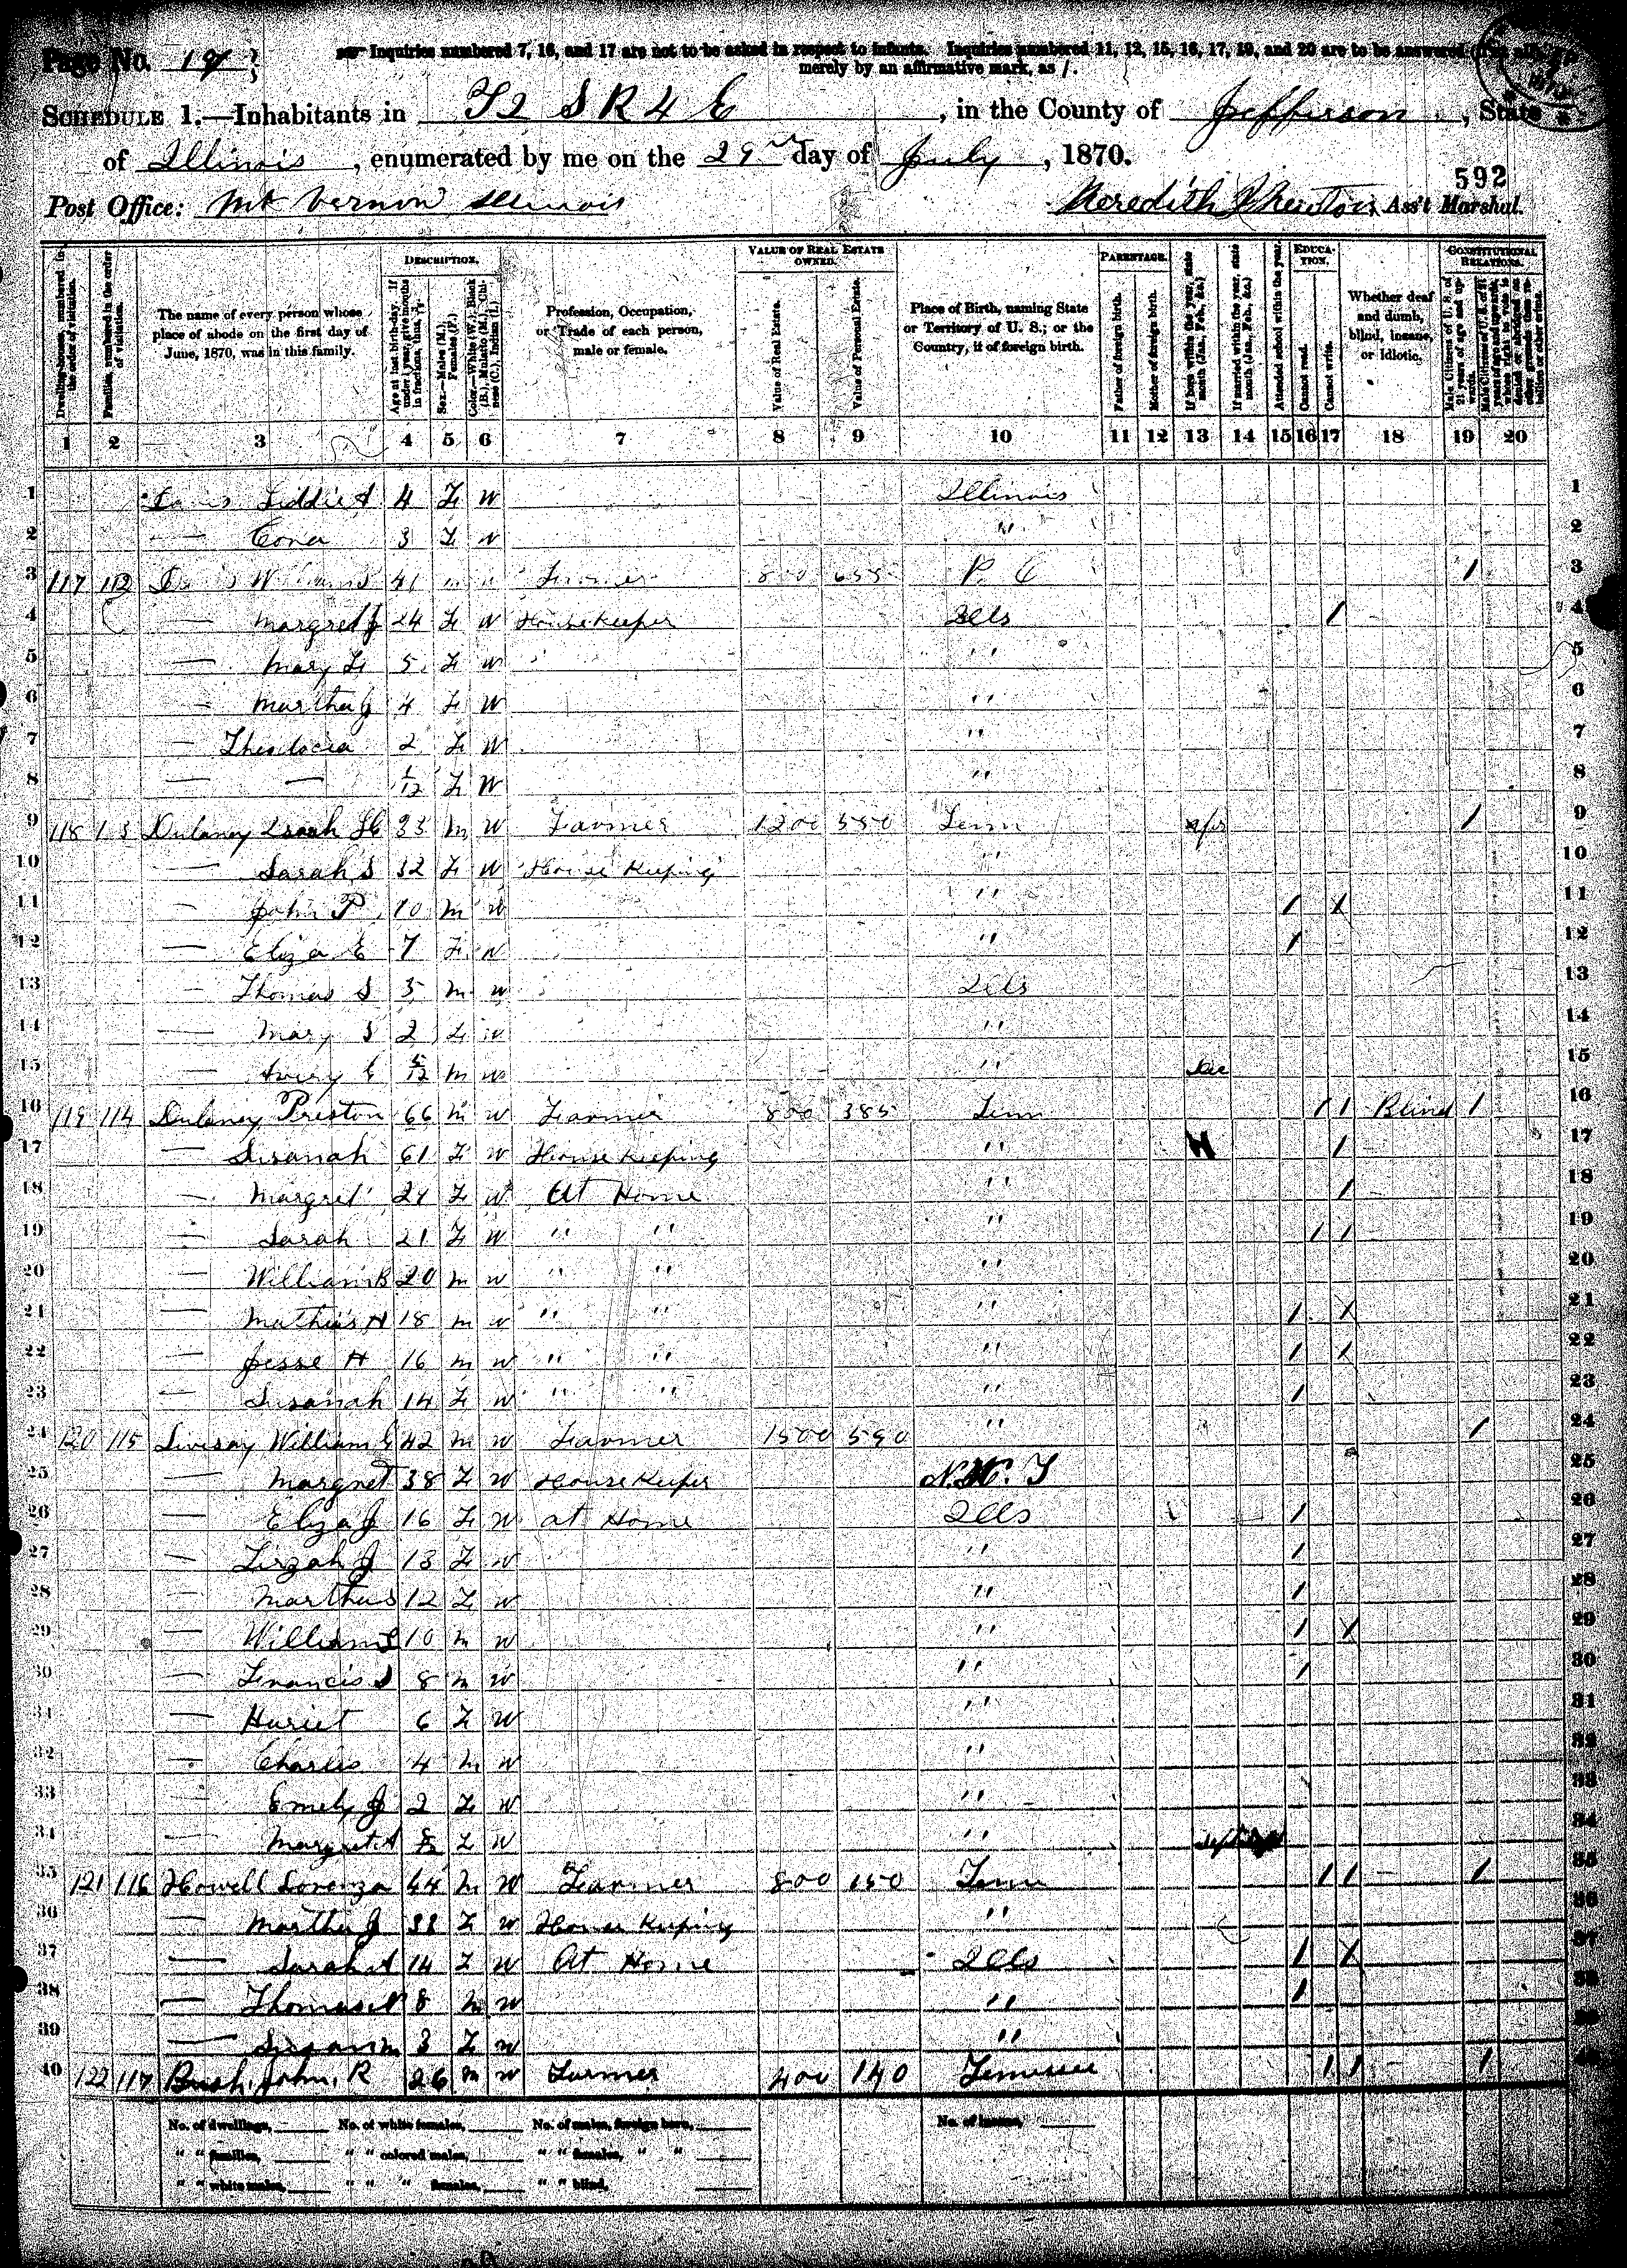 Page No. 17
Inquiries numbered 7, 16, and 17 are not to be asked in respect to infants. Inquiries numbered 11, 12, 15, 16, 17, 19, and 20 are to be answered
merely by an affirmative mark, as /.
SCHEDULE 1.—Inhabitants in T2 S R 4 E, in the County of Jefferson, State
of Illinois, enumerated by me on the 29 day of July, 1870.
592
Post Office: Mt Vernon Illinois Meredith Ass't Marshal.
DESCRIPTION. VALUE OF REAL ESTATE OWNED. PARENTAGE. EDUCATION. CONSTITUTIONAL RELATIONS.
Dwelling-houses, numbered in the order of visitation.
Families, numbered in the order of visitation.
The name of every person whose place of abode on the first day of June, 1870, was in this family.
Age at last birth-day. If under 1 year, give months in fractions, thus,
Sex.—Males (M.), Females (F.)
Color.—White (W.), Black (B.), Mulatto (M.), Chinese (C.), Indian (I.)
Profession, Occupation, or Trade of each person, male or female.
Value of Real Estate.
Value of Personal Estate.
Place of Birth, naming State or Territory of U. S.; or the Country, if of foreign birth.
Father of foreign birth.
Mother of foreign birth.
If born within the year, state month (Jan., Feb., &c.)
If married within the year, state month (Jan., Feb., &c.)
Attended school within the year.
Cannot read.
Cannot write.
Whether deaf and dumb, blind, insane, or idiotic.
Male Citizens of U. S. of 21 years of age and upwards.
1 2 3 4 5 6 7 8 9 10 11 12 13 14 15 16 17 18 19 20
1 Liddie A 4 F W Illinois 1
2 — Cora 3 F W " 2
3 117 112 Davis William S 41 m w Farmer 800 655 3
4 — Margret J 24 F W Housekeeper Ills / 4
5 — Mary F 5 F W " 5
6 — Martha J 4 F W " 6
7 — Theodocia 2 F W " 7
8 — — 1/12 F W " 8
9 118 113 Dulaney Isaah 33 m W Farmer 1200 550 Tenn / 9
10 — Sarah S 32 F W House Keeping " 10
11 — John P 10 m W " / X 11
12 — Eliza E 7 F W " / 12
13 — Thomas S 5 m w Ills 13
14 — Mary S 2 F w " 14
15 — Avery E 5/12 m w " 15
16 119 114 Dulaney Preston 66 m w Farmer 800 385 Tenn / / Blind / 16
17 — Susanah 61 F W House Keeping " / 17
18 — Margret F W At Home " / 18
19 — Sarah 21 F W " " " / / 19
20 — William B 20 m w " " " 20
21 — Mathias H 18 m w " " " / X 21
22 — Jesse H 16 m w " " " / X 22
23 — Susanah 14 F W " " " / 23
24 120 115 Livesay William G 42 m w Farmer 1500 590 " / 24
25 — Margret 38 F W House Keeper 25
26 — Eliza J 16 F W at Home Ills / 26
27 — Tirzah J 13 F W " / 27
28 — Martha S 12 F W " / 28
29 — William 10 m w " / X 29
30 — Francis S 8 m w " / 30
31 — Hariet 6 F W " 31
32 — Charles 4 m w " 32
33 — Emely J 2 F W " 33
34 — Margret A F W " 34
35 121 116 Howell Lorenza 44 m W Farmer 800 150 Tenn / / / 35
36 — Martha J 38 F W House Keeping " 36
37 — Sarah A 14 F W At Home Ills / X 37
38 — Thomas 8 m w " / 38
39 — Susan m 3 F w " 39
40 122 117 Bush John R 26 m w Farmer 400 140 Tennessee / / / 40
No. of dwellings, No. of white females, No. of males, foreign born, No. of insane,
" " families, " " colored males, " " females, " "
" " white males, " " " females, " " blind,